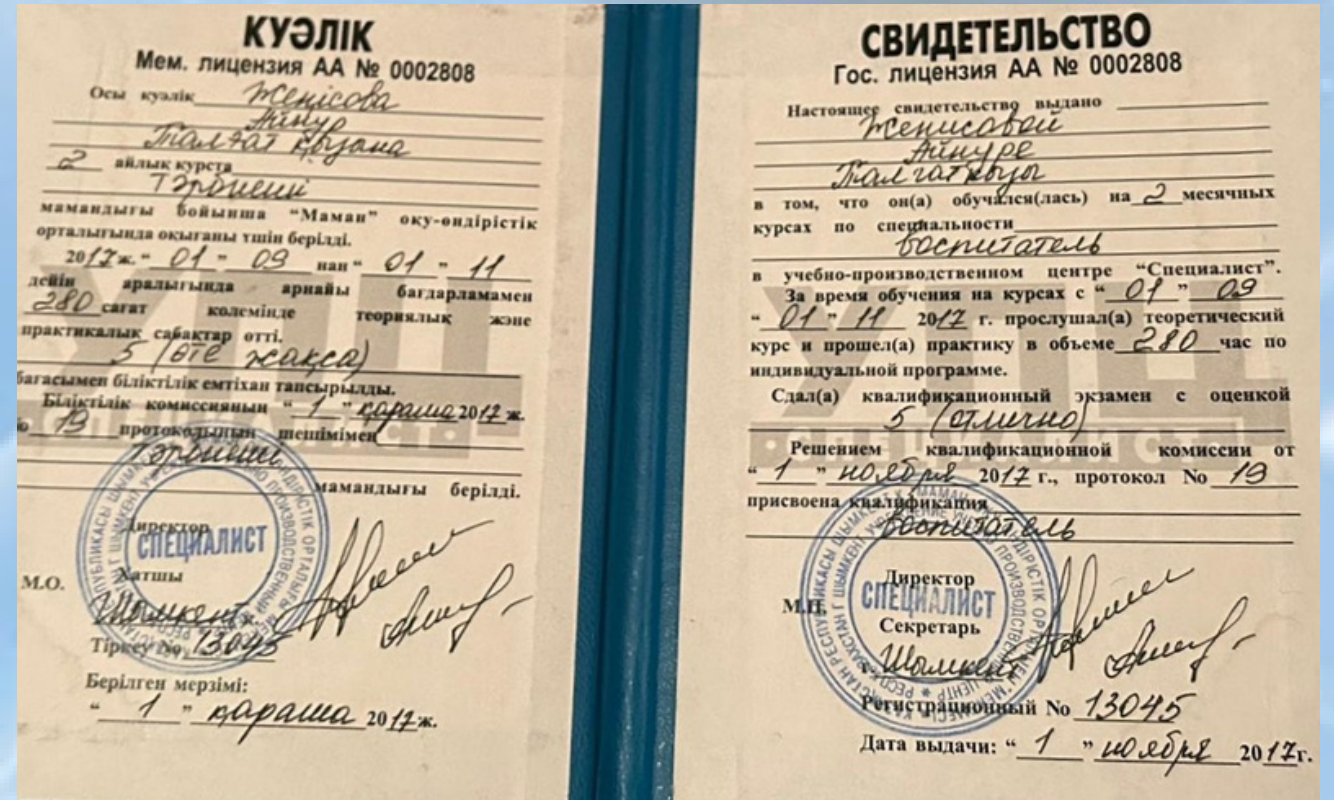 КУӘЛІК
Мем. лицензия АА № 0002808
Осы куәлік Женісова
Айнур
Талғат қызына
2 айлык курста
Тәрбиеші
мамандығы бойынша “Маман” оқу-өндірістік
орталығында оқығаны үшін берілді.
2017ж. “ 01 ” 09 нан “ 01 ” 11
дейін аралығында арнайы бағдарламамен
280 сағат көлемінде теориялық және
практикалық сабақтар өтті.
5 (өте жақсы)
бағасымен біліктілік емтіхан тапсырылды.
Біліктілік комиссиянын “ 1 ” қараша 2017 ж.
19 протоколынын шешімімен
Тәрбиеші
мамандығы берілді.
Директор
СПЕЦИАЛИСТ
М.О.
Хатшы
Шымкент к.
Тіркеу No 13045
Берілген мерзімі:
“ 1 ” қараша 2017ж.
СВИДЕТЕЛЬСТВО
Гос. лицензия АА № 0002808
Настоящее свидетельство выдано
Женисовой
Айнуре
Талгаткызы
в том, что он(а) обучался(лась) на 2 месячных
курсах по специальности
воспитатель
в учебно-производственном центре “Специалист”.
За время обучения на курсах с “ 01 ” 09
“ 01 ” 11 2017 г. прослушал(а) теоретический
курс и прошел(а) практику в объеме 280 час по
индивидуальной программе.
Сдал(а) квалификационный экзамен с оценкой
5 (отлично)
Решением квалификационной комиссии от
“ 1 ” ноября 2017 г., протокол No 19
присвоена квалификация
воспитатель
Директор
СПЕЦИАЛИСТ
М.П.
Секретарь
г. Шымкент
Регистрационный No 13045
Дата выдачи: “ 1 ” ноября 2017г.
УПЦ
СПЕЦИАЛИСТ